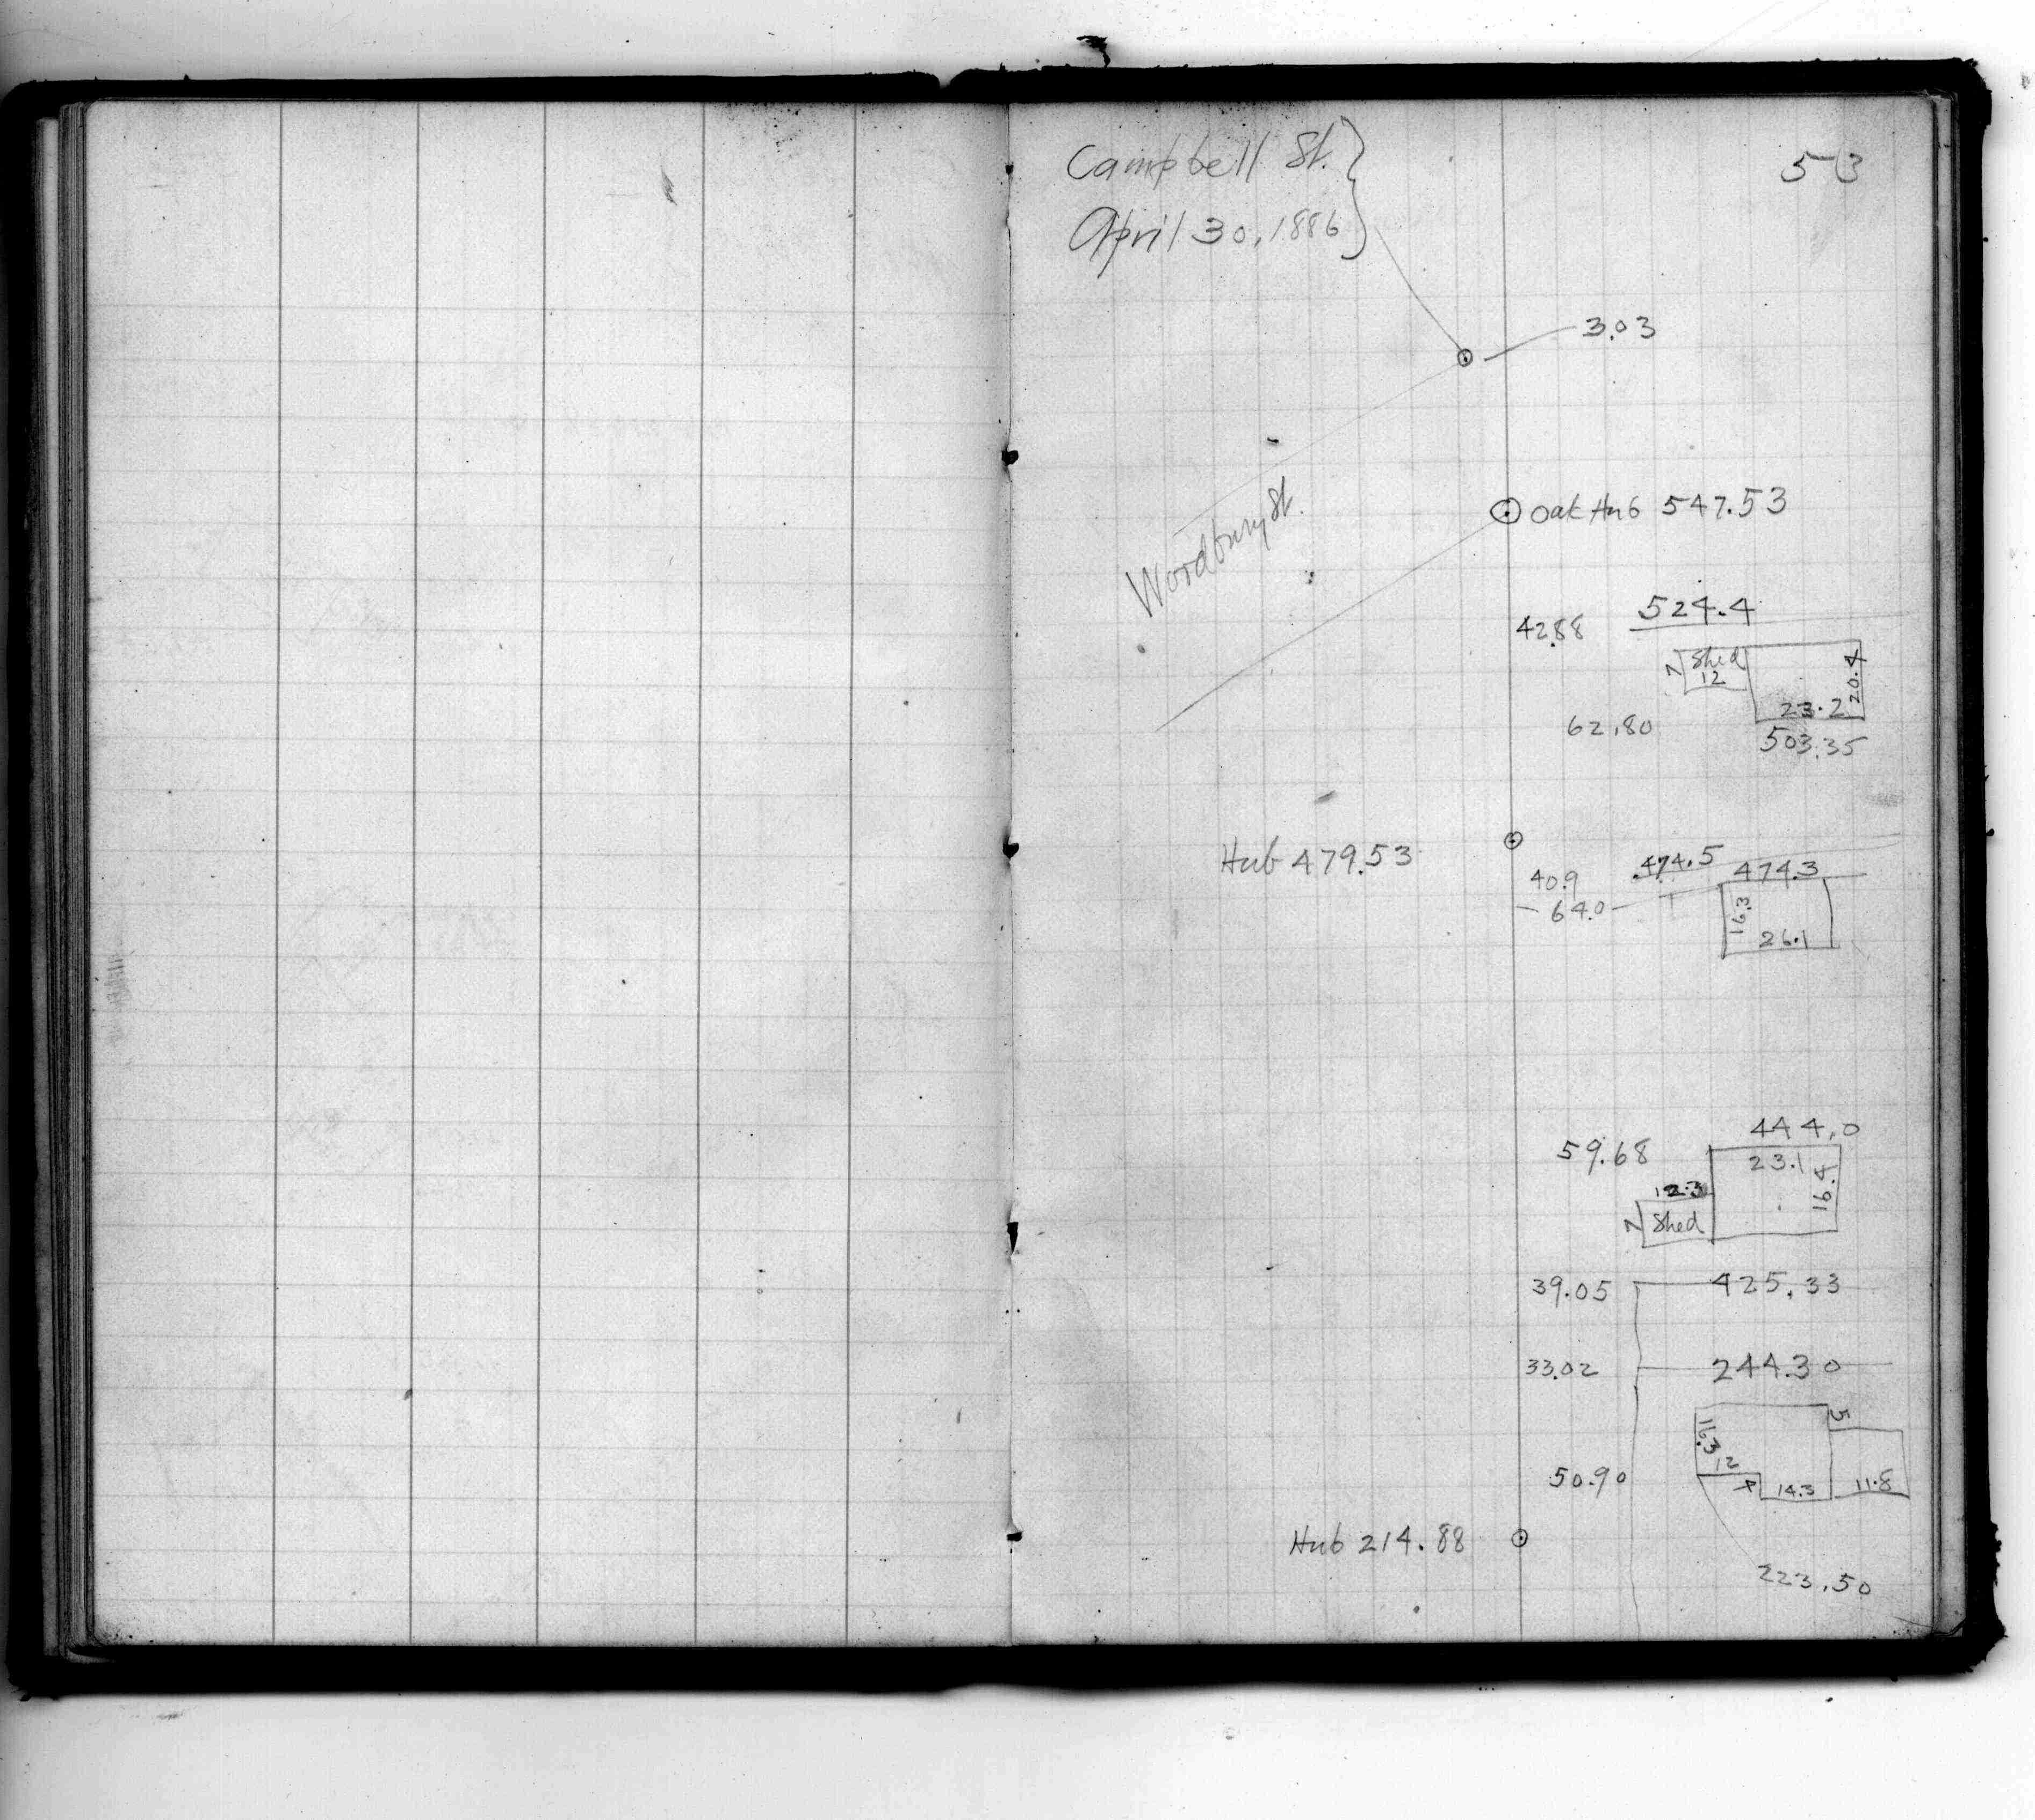 Campbell St.
April 30, 1886
53
3.03
Woodbury St.
Oak Hub 547.53
42.88
524.4
Shed
12
7
20.4
23.2
62.80
503.35
Hub 479.53
40.9
474.5
474.3
64.0
16.3
26.1
444.0
59.68
23.1
16.4
12.3
7
Shed
39.05
425.33
33.02
244.30
16.3
5
12
4
14.3
11.8
50.90
Hub 214.88
223.50